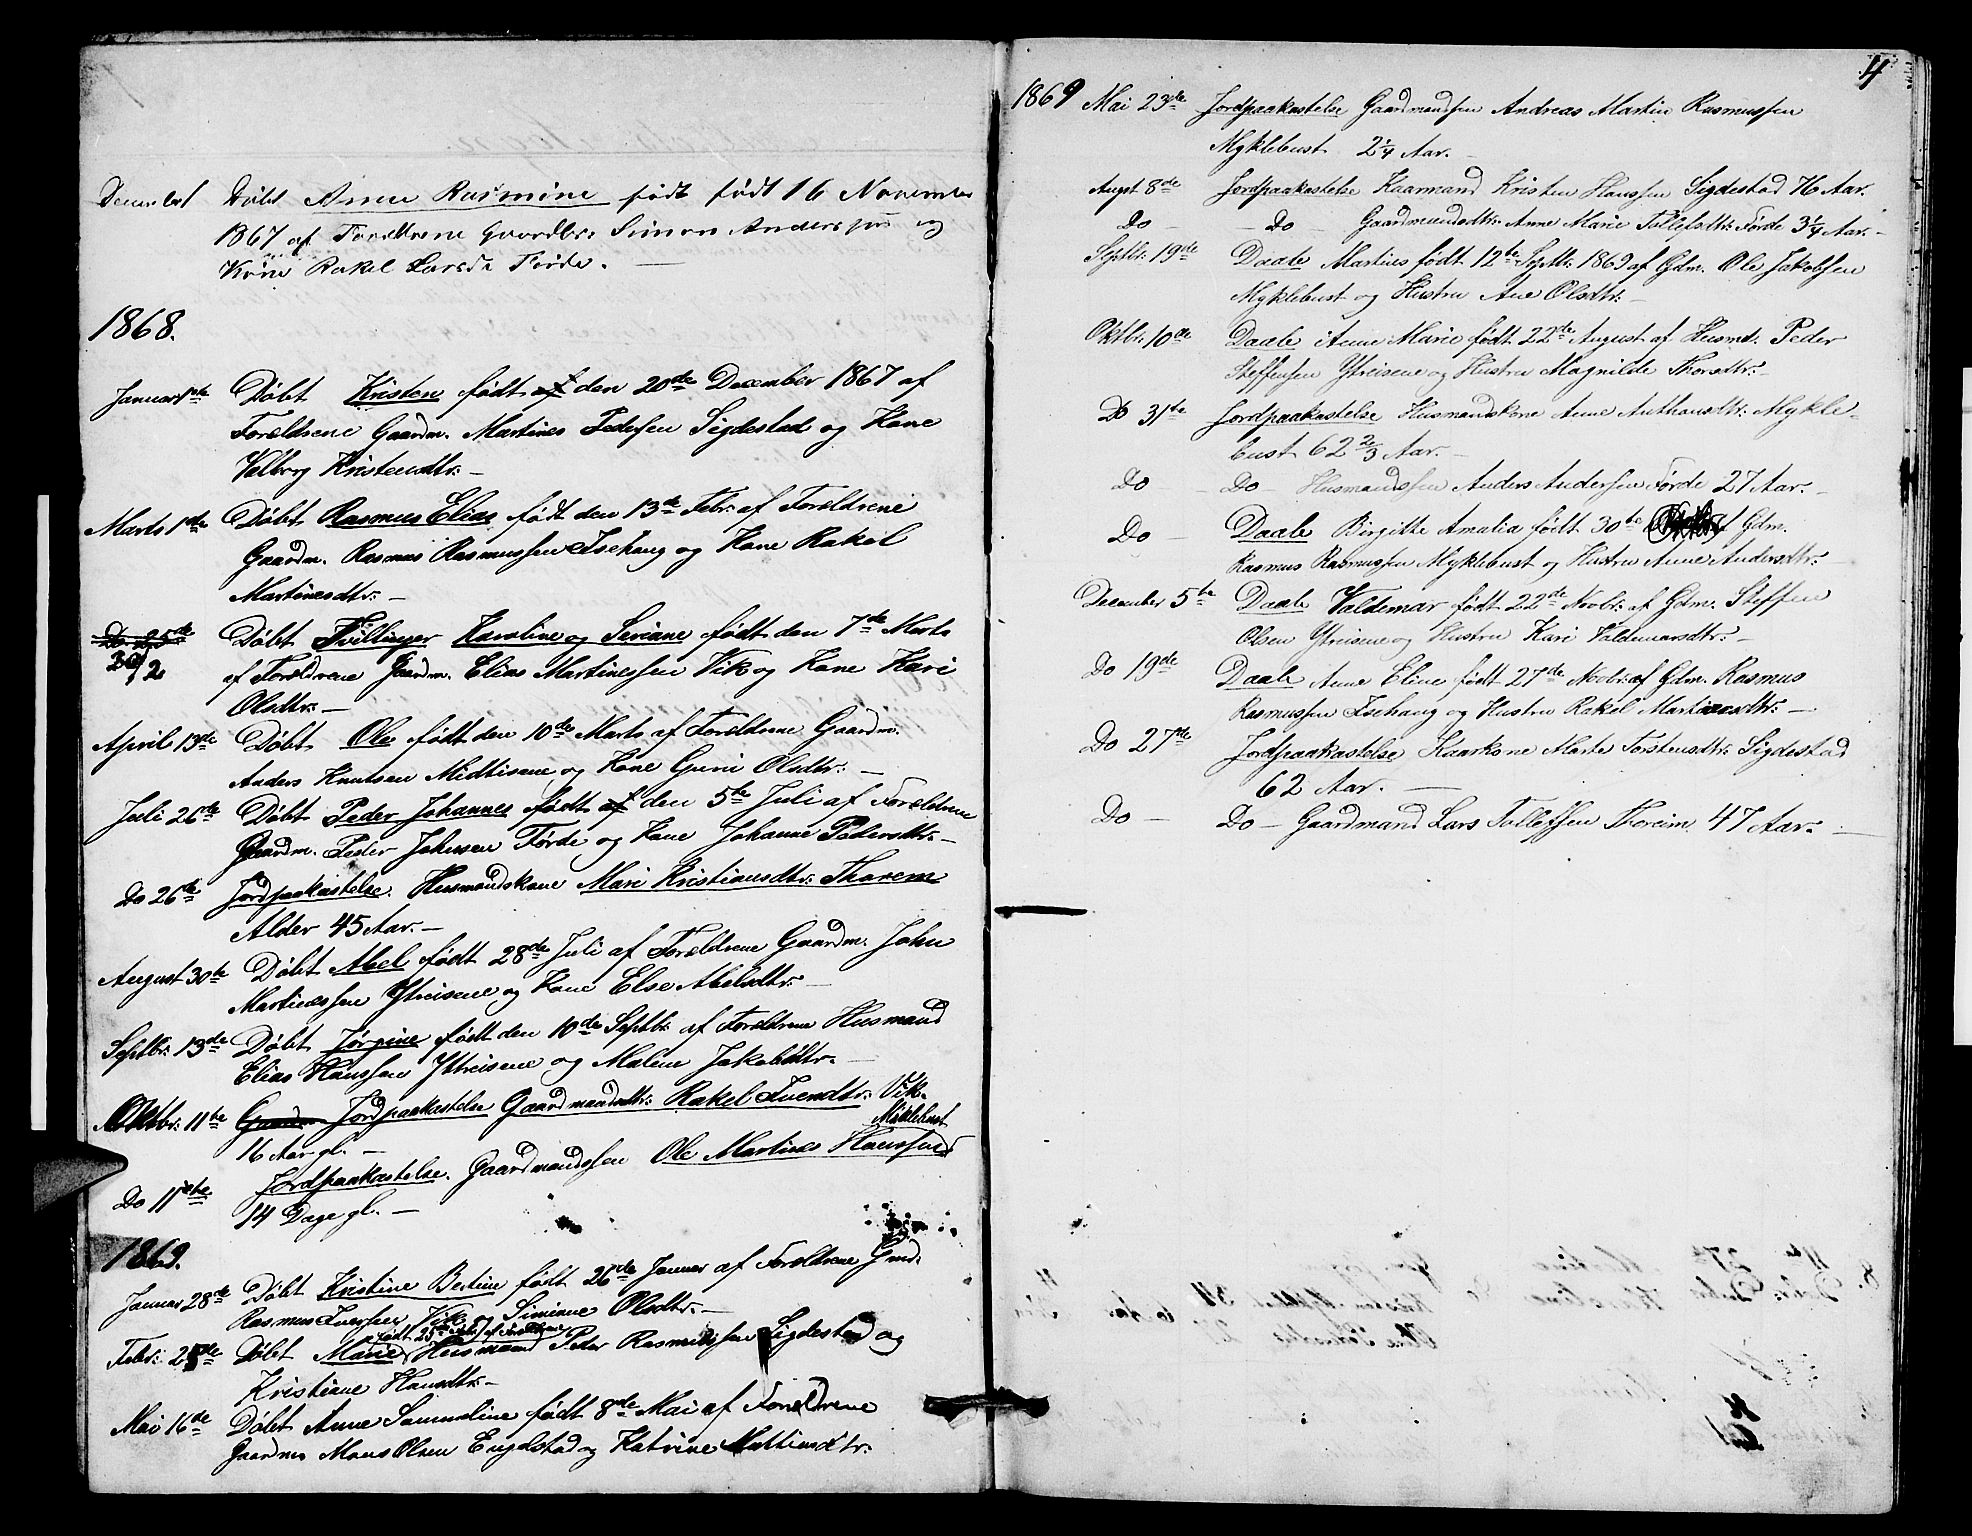 Decembr 1 Døbt Anne Rasmine født født 16 November
1867 af Forældrene Gaardbr. Simon Anderssen og
Kone Rakel Larsdr Førde. —
1868.
Januar 1ste Døbt Kristen født af den 20de December 1867 af
Forældrene Gaardm. Martines Pedersen Sigdestad og Kone
Valborg Kristensdtr. —
Marts 1ste Døbt Rasmus Elias født den 13de Febr. af Forældrene
Gaardm. Rasmus Rasmussen Isehaug og Kone Rakel
Martinesdtr. —
Do 25de Døbt Tvillinger Karoline og Seriane født den 7de Marts
af Forældrene Gaardm. Elias Martinessen Vik og Kone Kari
Olsdtr. —
April 13de Døbt Ole født den 10de Marts af Forældrene Gaardm.
Anders Knutsen Midtisene og Kone Guri Olsdtr. —
Juli 26de Døbt Peder Johannes født af den 5te Juli af Forældrene
Gaardm. Peder Johnssen Førde og Kone Johanne Pedersdtr. —
Do 26de Jordpaakastelse. Husmandskone Mari Kristiansdtr. Thorem
Alder 45 Aar. —
August 30te Døbt Abel født 28de Juli af Forældrene Gaardm. John
Martinessen Ytreisene og Kone Else Abelsdtr. —
Septbr. 13de Døbt Jørgine født den 10de Septbr. af Forældrene Husmand
Elias Hanssen Ytreisene og Malene Jakobsdtr. —
Oktbr. 11te Gaardm Jordpaakastelse Gaardmandsdtr. Rakel Iversdtr. Vik.
16 Aar gl. —
Myklebust
Do 11te Jordpaakastelse. Gaardmandssen Ole Martines Hanssen
14 Dage gl. —
1869.
Januar 28de Døbt Kristine Bertine født 26de Januar af Forældrene Gmd.
Rasmus Iverssen Vik og Simiane Olsdtr. —
født 25de Febr. af Forældrene
Febr. 28de Døbt Marie Husmand Peter Rasmussen Sigdestad og
Kristiane Hansdtr. —
Mai 16de Døbt Anne Sammeline født 8de Mai af Forældrene
Gaardm Mons Olsen Engelstad og Katrine Mattiasdtr.
4
1869 Mai 23de Jordpaakastelse Gaardmandssen Andreas Martin Rasmussen
Myklebust 2 1/4 Aar. —
Augst 8de Jordpaakastelse Kaarmand Kristen Hanssen Sigdestad 76 Aar.
Do — Do Gaardmandsdtr. Anne Marie Tollefsdtr. Førde 3 1/4 Aar. —
Septbr. 19de Daab Martines født 12te Septbr. 1869 af Gdm. Ole Jakobsen
Myklebust og Hustru Ane Olsdtr. —
Oktbr. 10de Daab Anne Marie født 22de August af Husmd. Peder
Steffensen Ytreisene og Hustru Magnilde Thorsdtr. —
Do 31te Jordpaakastelse Husmandskone Anne Anthonsdtr. Mykle-
bust 62 2/3 Aar. —
Do — Do — Husmandssen Anders Andersen Førde 27 Aar. —
Do — Daab Birgitte Amalia født 30te af Gdm.
Rasmus Rasmussen Myklebust og Hustru Anne Andersdtr. —
December 5te Daab Valdemar født 22de Novbr. af Gdm. Steffen
Olsen Ytreisene og Hustru Kari Valdemarsdtr. —
Do 19de Daab Anne Eline født 27de Novbr. af Gdm. Rasmus
Rasmussen Isehaug og Hustru Rakel Martinesdtr. —
Do 27de Jordpaakastelse Kaarkone Marte Torstensdtr. Sigdestad
62 Aar. —
Do — Do — Gaardmand Lars Tollefsen Thoreim 47 Aar. —